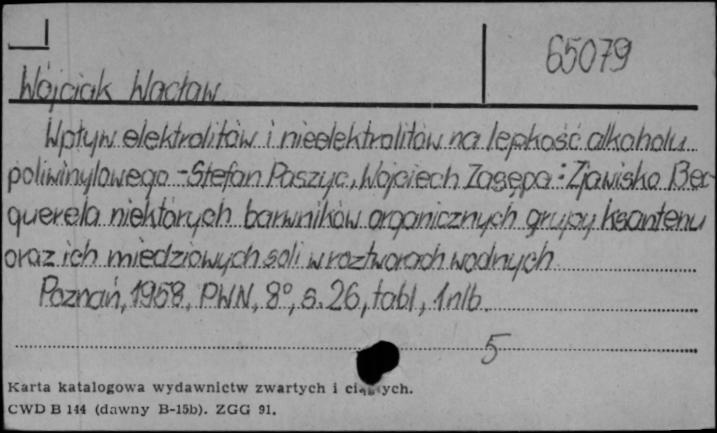 65079
Wójciak Wacław
Wpływ elektrolitów i nieelektrolitów na lepkość alkoholu
poliwinylowego - Stefan Paszyc, Wojciech Zasępa: Zjawisko Bec-
querela niektórych barwników organicznych grupy ksantenu
oraz ich miedziowych soli w roztworach wodnych
Poznań, 1958, PWN, 8°, s. 26, tabl, 1 nlb.
5
Karta katalogowa wydawnictw zwartych i ciągłych.
CWD B 144 (dawny B-15b). ZGG 91.